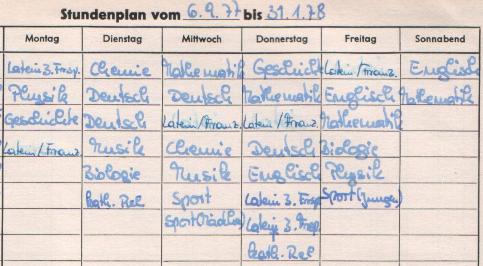 Stundenplan vom 6.9.77 bis 31.1.78
Montag Dienstag Mittwoch Donnerstag Freitag Sonnabend
Latein 3. Frsp. Chemie Mathematik Geschichte Latein/Franz. Englisch
Physik Deutsch Deutsch Mathematik Englisch Mathematik
Geschichte Deutsch Latein/Franz. Latein/Franz. Mathematik
Latein/Franz. Musik Chemie Deutsch Biologie
Biologie Musik Englisch Physik
Kath. Rel Sport Latein 3. Frsp Sport (Jungen)
Sport (Mädchen) Latein 3. Frsp.
Kath. Rel